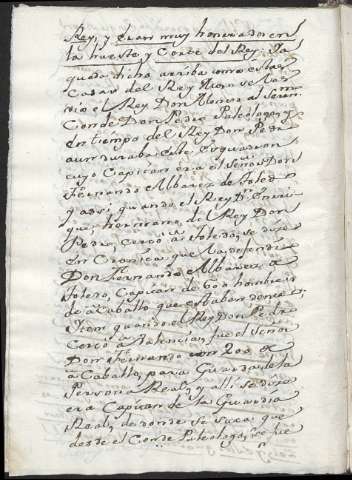 Rey, y eran muy honrados en
la hueste y Corte del Rey: Ya
queda dicha arriba como estas
Casas del Rey Moro se las
dio el Rey Don Alonso al Seren
Conde Don Pedro Paleologo, y
en tiempo del Rey Don Pedro
aun duraba este Esquadron
cuyo Capitan era el Señor Don
Fernando Albarez de Toledo
y assi, quando el Rey Dn. Enrri
que, hermano del Rey Don
Pedro, Cercò à Toledo, se dize
en Cronica que la defendia
Don Fernando Albarez de
Toledo, Capitan de 600 hombres
de à Caballo que estaban dentro:
Item quando el Rey Don Pedro
Cercò a Valencia, fue el Señor
Don Fernando con 200 de
à Caballo, para Guarda de la
Persona Real, y alli se dize
era Capitan de la Guardia
Real, de donde se saca que
desde el Conde Paleologo, se fue